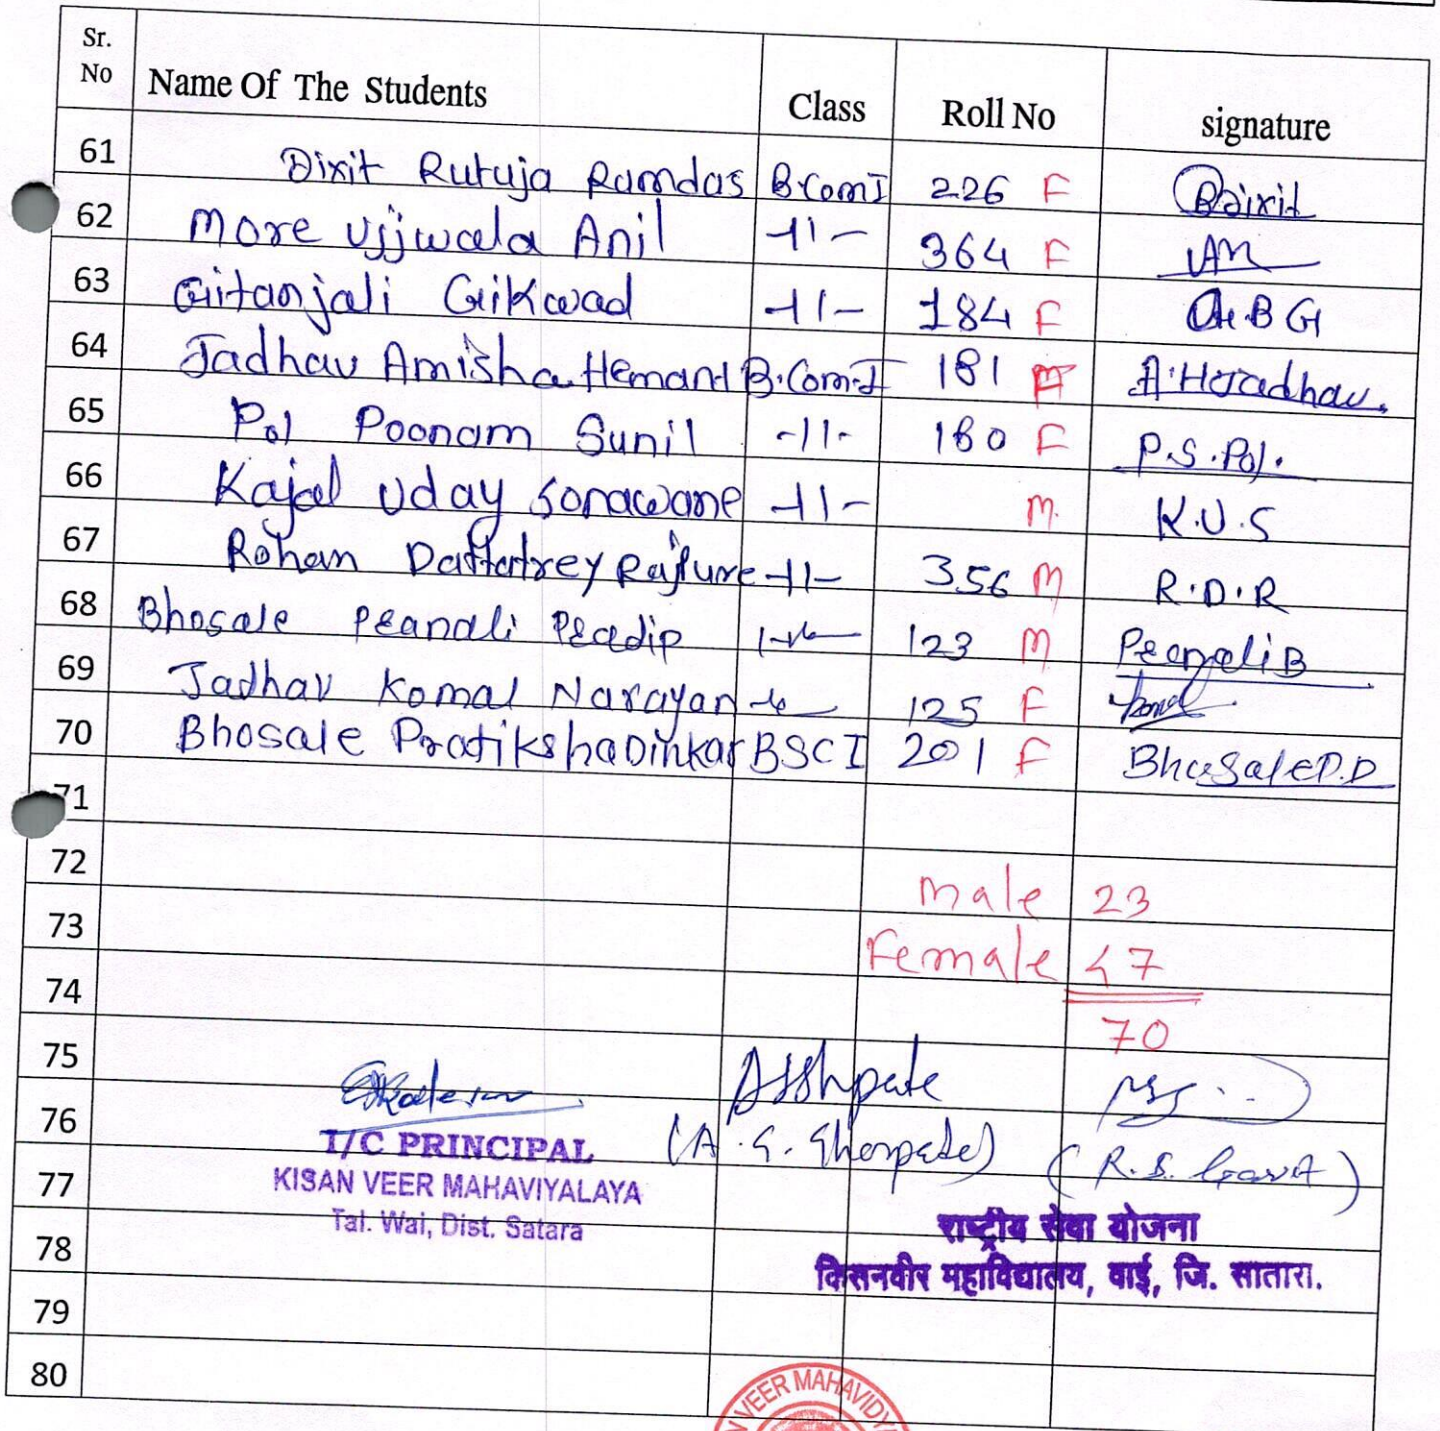 Sr. No Name Of The Students Class Roll No signature
61 Dixit Rutuja Ramdas B.Com I 226 F RDixit
62 More Ujjwala Anil -11- 364 F UAM
63 Gitanjali Gikwad -11- 184 F G.B G
64 Jadhav Amisha Hemant B.Com-I 181 F A.H.Jadhav.
65 Pol Poonam Sunil -11- 180 F P.S.Pol.
66 Kajal Uday Sonawane -11- M. K.U.S
67 Rohan Dattatrey Rajpure -11- 356 M R.D.R
68 Bhosale Pranali Pradip -11- 123 M Pranali B
69 Jadhav Komal Narayan -11- 125 F Komal
70 Bhosale Pratiksha Dinkar BSC I 201 F Bhosale P.D
71
72 male 23
73 Female 47
74 70
75
76
I/C PRINCIPAL (A. S. Ghorpade) (R. S. Gavit)
77
KISAN VEER MAHAVIYALAYA
Tal. Wai, Dist. Satara राष्ट्रीय सेवा योजना
78 किसनवीर महाविद्यालय, वाई, जि. सातारा.
79
80
VEER MAHAVIDY